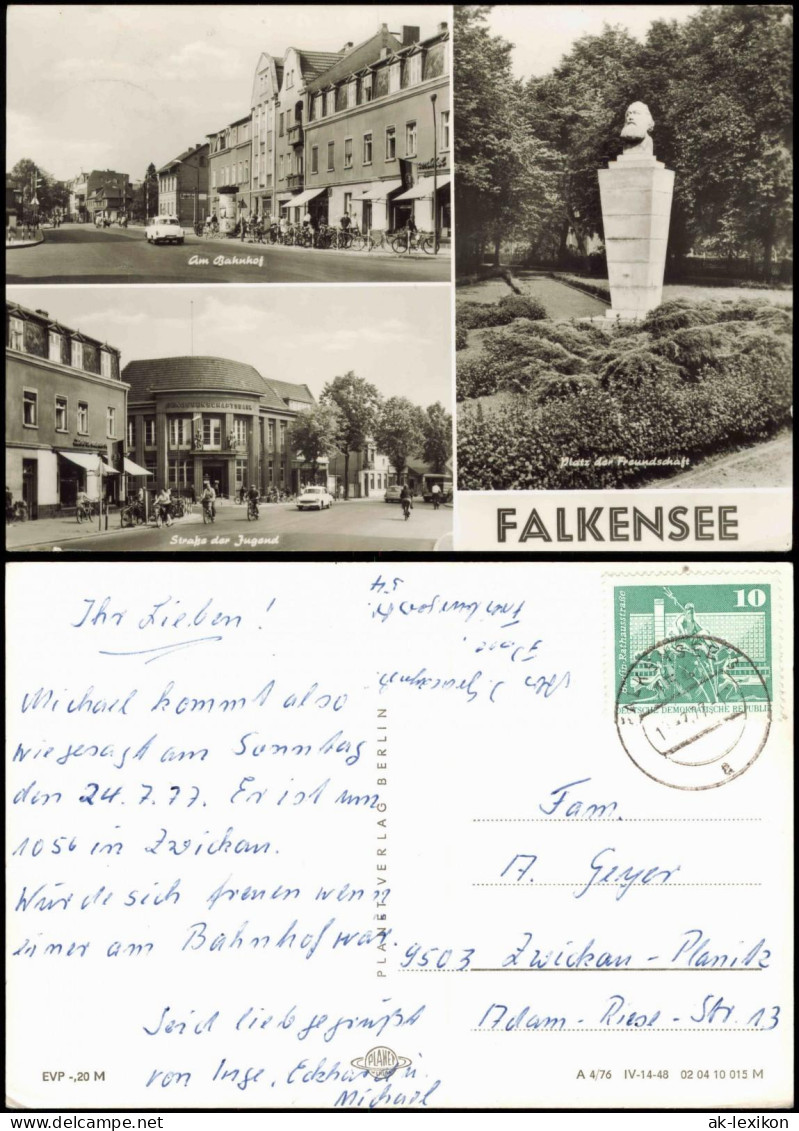 Am Bahnhof
Straße der Jugend
Platz der Freundschaft
FALKENSEE
Ihr Lieben!
Michael kommt also
wiegesagt am Sonntag
den 24.7.77. Er ist um
1056 in Zwickau.
Würde sich freuen wenn
einer am Bahnhof war.
Seid lieb gegrüßt
von Inge, Eckhard u.
Michael
54
PLANET-VERLAG BERLIN
10
Berlin-Rathausstraße
DEUTSCHE DEMOKRATISCHE REPUBLIK
FALKENSEE
Fam.
A. Geyer
9503 Zwickau-Planitz
Adam-Riese-Str. 13
EVP -,20 M
PLANET
A 4/76 IV-14-48 02 04 10 015 M
www.delcampe.net
ak-lexikon